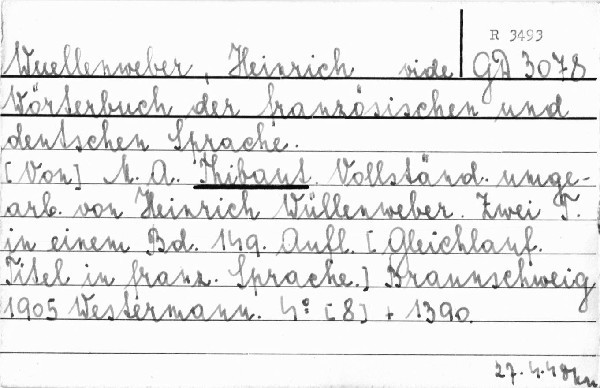 R 3493
Wuellenweber, Heinrich vide GD 3078
Wörterbuch der französischen und
deutschen Sprache.
[Von] M. A. Thibaut. Vollständ. umge-
arb. von Heinrich Wüllenweber. Zwei T.
in einem Bd. 149. Aufl. [Gleichlauf.
Titel in franz. Sprache.] Braunschweig
1905 Westermann. 4° [8] + 1390.
27.4.48